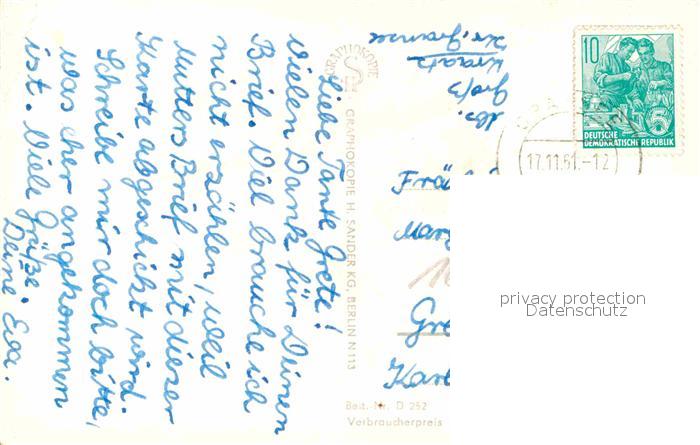 Liebe Tante Grete!
Vielen Dank für Deinen
Brief. Viel brauche ich
nicht erzählen, weil
Mutters Brief mit dieser
Karte abgeschickt wird.
Schreibe mir doch bitte,
was eher angekommen
ist. Viele Grüße.
Deine Eva.
GRAPHOKOPIE
GRAPHOKOPIE H. SANDER KG, BERLIN N 113
Abs.
Groß
Kreutz
10
DEUTSCHE
DEMOKRATISCHE REPUBLIK
17.11.61.-12
Frä
Mar
Gre
Kar
privacy protection
Datenschutz
Best.-Nr. D 252
Verbraucherpreis